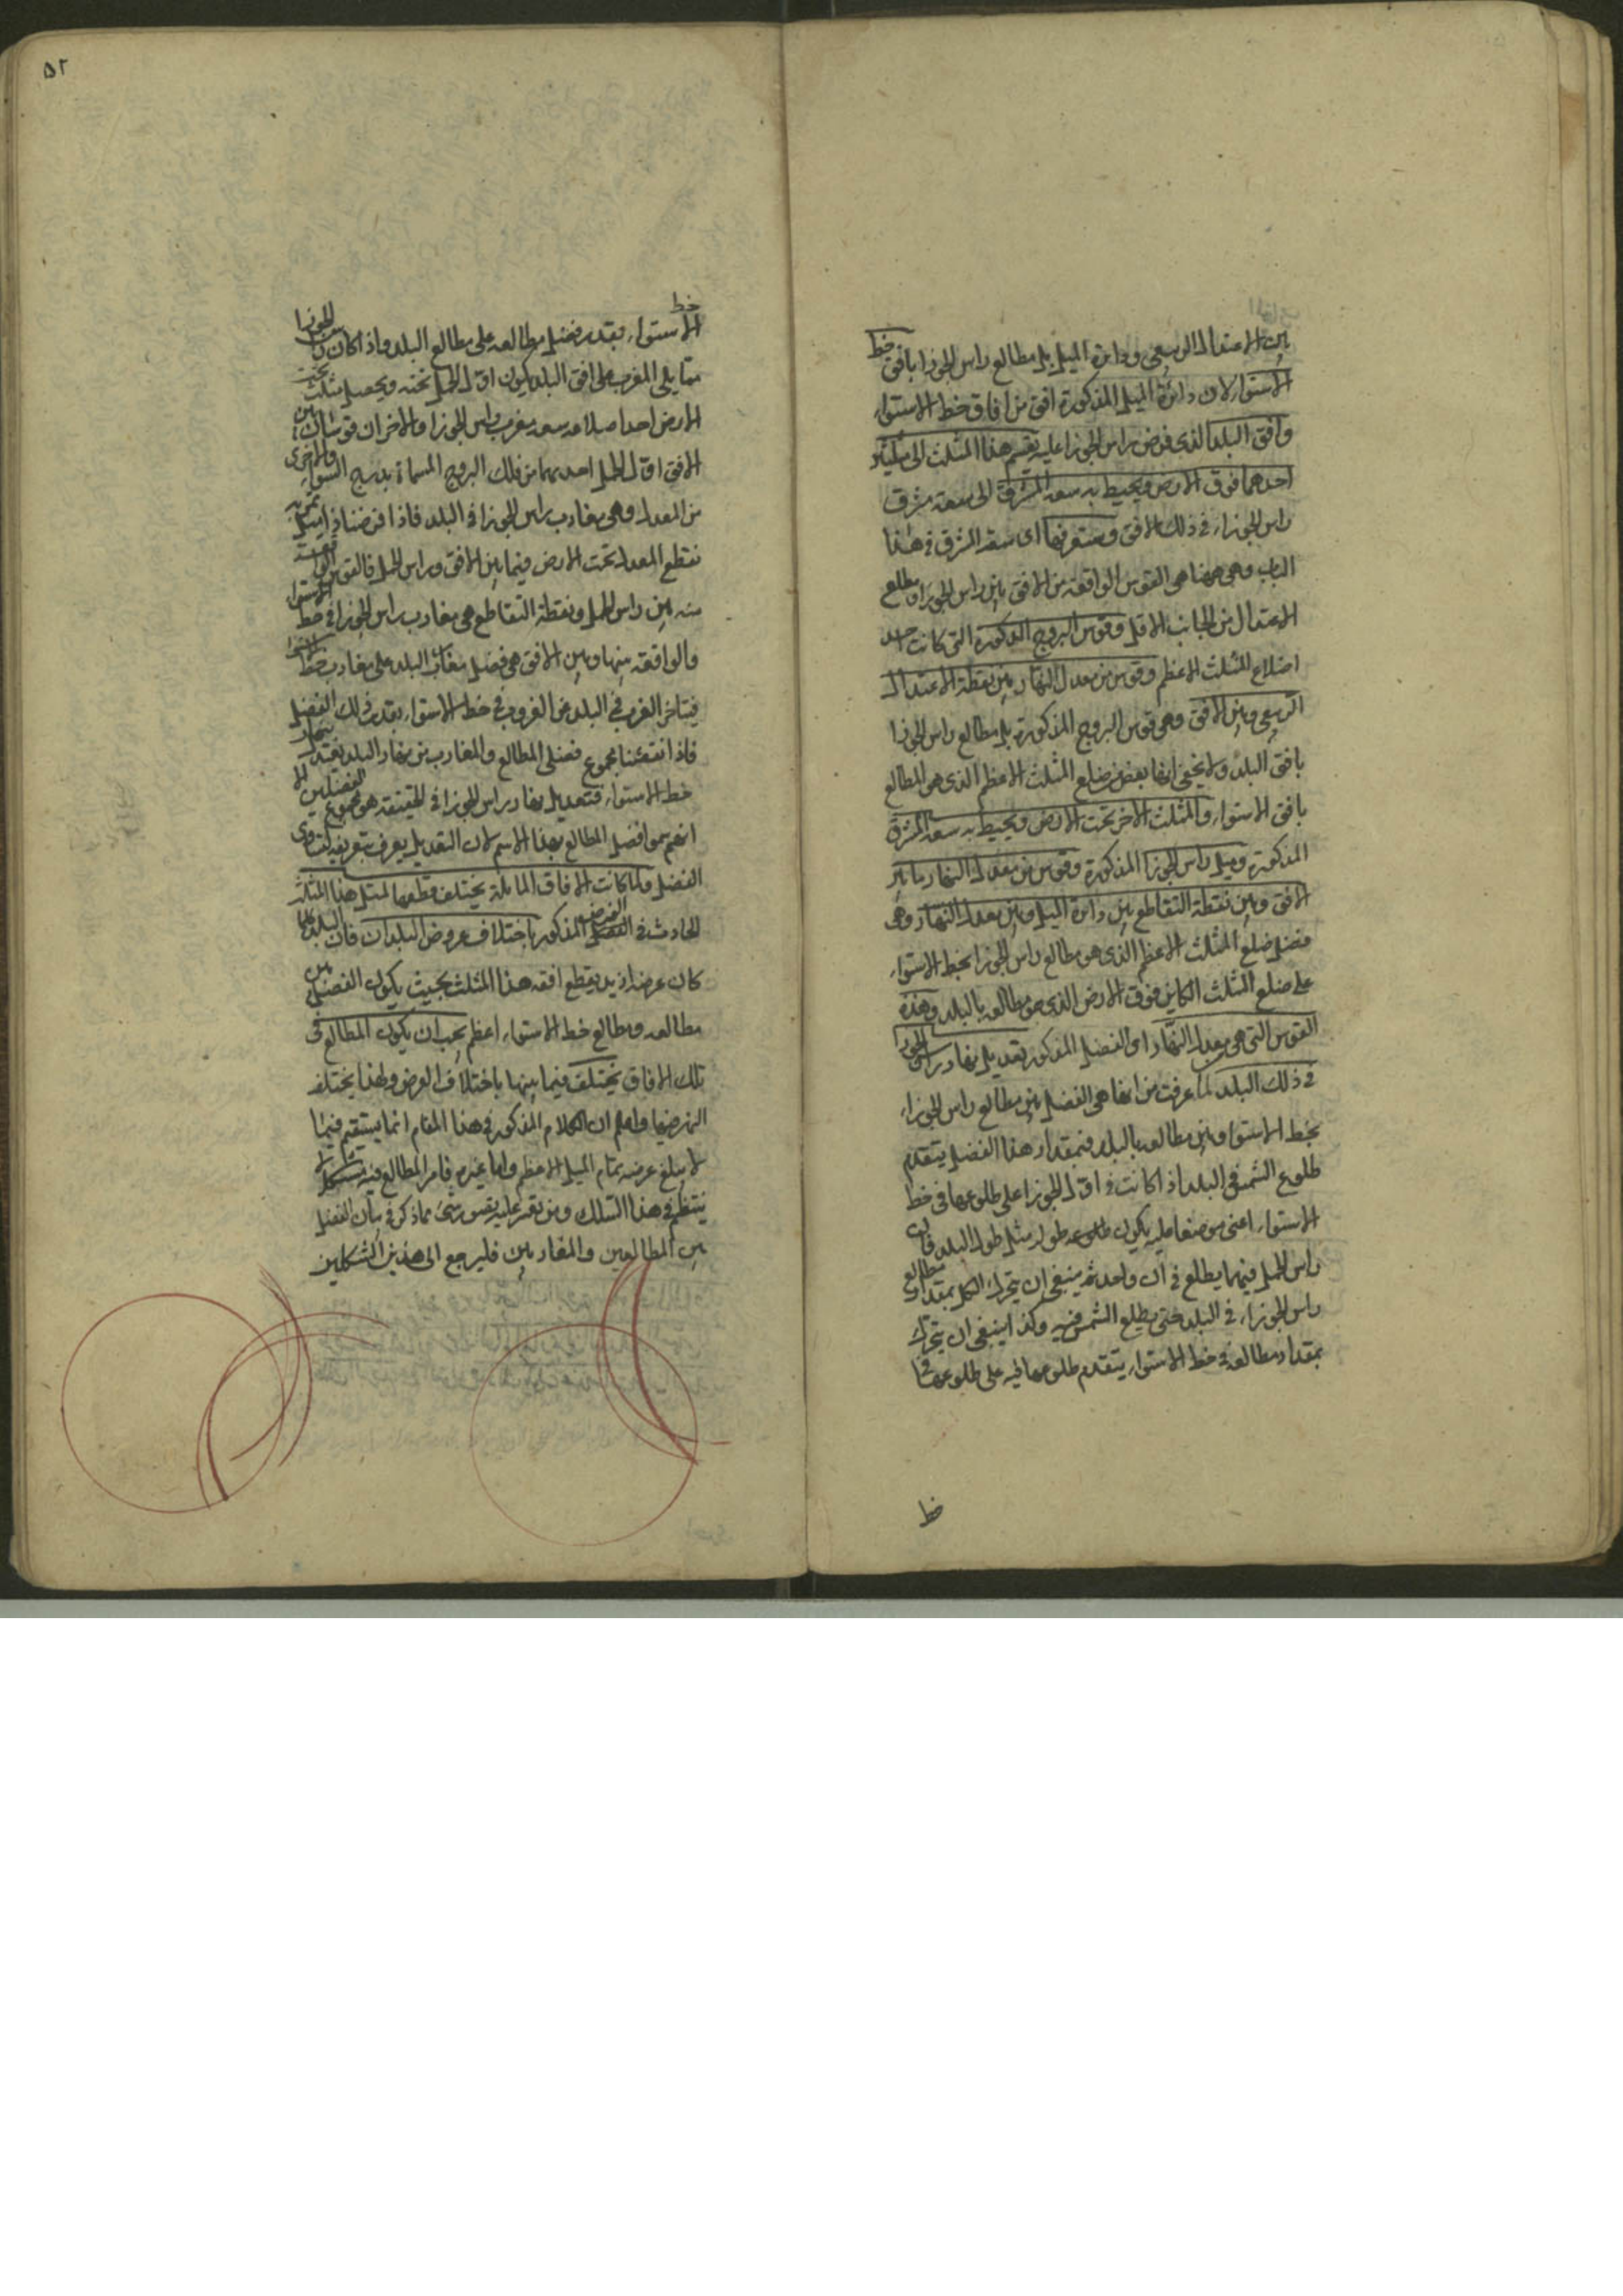 بين الاعتدال الربيعى ودائرة الميل بل مطالع راس الجوزا بافق خط
الاستواء لان دائرة الميل المذكورة افق من افاق خط الاستواء
وافق البلد الذى فرض راس الجوزا عليه يقسم هذا المثلث الى مثلثين
احدهما فوق الارض ويحيط به سعة المشرق اى سعة مشرق
راس الجوزاء فى ذلك الافق وستعرفها اى سعة المشرق فى هذا
الباب وهى ههنا هى القوس الواقعة من الافق بين راس الجوزا ومطلع
الاعتدال من الجانب الاقل وقوس البروج المذكورة التى كانت احد
اضلاع المثلث الاعظم وقوس من معدل النهار بين نقطة الاعتدال
الربيعى وبين الافق وهى قوس البروج المذكورة بل مطالع راس الجوزا
بافق البلد ولا يخفى انها بعض من ضلع المثلث الاعظم الذى هو المطالع
بافق الاستواء والمثلث الاخر تحت الارض ويحيط به سعة المشرق
المذكورة وميل راس الجوزا المذكورة وقوس من معدل النهار ما بين
الافق وبين نقطة التقاطع بين دائرة الميل وبين معدل النهار وهى
فضل ضلع المثلث الاعظم الذى هو مطالع راس الجوزا بخط الاستواء
على ضلع المثلث الكاين فوق الارض الذى هو مطالعه بالبلد وهذه
القوس التى هى من معدل النهار اى الفضل المذكور تعديل نهار راس الجوزا
فى ذلك البلد لما عرفت من انها هى الفضل بين مطالع راس الجوزاء
بخط الاستوا وبين مطالعه بالبلد فبمقدار هذا الفضل يتقدم
طلوع الشمس فى البلد اذا كانت فى اول الجوزا على طلوعها فى خط
الاستواء اعنى موضعا عليه يكون طوله مثل طول البلد فان
راس الحمل فيهما يطلع فى ان واحد ثم ينبغى ان يتحرك الكل بمقدار مطالع
راس الجوزاء فى البلد حتى يطلع الشمس فيه وكذا ينبغى ان يتحرك
بمقدار مطالعه فى خط الاستواء يتقدم طلوعها فيه على طلوعها فى
خط
۵۲
خط
الاستواء بقدر فضل مطالعه على مطالع البلد واذا كان راس الجوزا
مما يلى المغرب على افق البلد يكون اول الحمل تحته ويحصل مثلث تحت
الارض احد اضلاعه سعة مغرب راس الجوزا والاخران قوسان بين
الافق اول الحمل احدهما من فلك البروج المسماة بدرج السواء والاخرى
من المعدل وهى مغارب راس الجوزا فى البلد فاذا فرضنا دائرة ميل تمر به
تقطع المعدل تحت الارض فيما بين الافق وراس الحمل فالقوس الواقعة
منه بين راس الحمل ونقطة التقاطع هى مغارب راس الجوزا فى خط الاستوا
والواقعة بينها وبين الافق هى فضل مغارب البلد على مغارب خط الاستوا
فيتاخر الغروب فى البلد عن الغروب فى خط الاستواء بقدر ذلك الفضل
فاذا نقصنا مجموع فضلى المطالع والمغارب من نهار البلد بقى نهار
خط الاستواء فتعديل نهار راس الجوزا فى الحقيقة هو مجموع الفضلين الا
انهم سموا فضل المطالع بهذا الاسم لان التعديل يعرف بتعريفه لتساوى
الفضل ولما كانت الافاق المائلة يختلف قطعها لمثل هذا المثلث
الحادث فى الفرض المذكور باختلاف عروض البلدان فان البلد كلما
كان عرضه ازيد يقطع افقه هذا المثلث بحيث يكون الفضل بين
مطالعه ومطالع خط الاستواء اعظم يجب ان يكون المطالع فى
تلك الافاق يختلف فيما بينها باختلاف العرض ولهذا يختلف
النهر فيها واعلم ان الكلام المذكور فى هذا المقام انما يستقيم فيما
لا يبلغ عرضه تمام الميل الاعظم واما غيره فامر المطالع فيه مشكل لا
ينتظم فى هذا السلك ومن تعسر عليه تصور شى مما ذكر فى بيان الفضل
بين المطالعين والمغاربين فليرجع الى هذين الشكلين